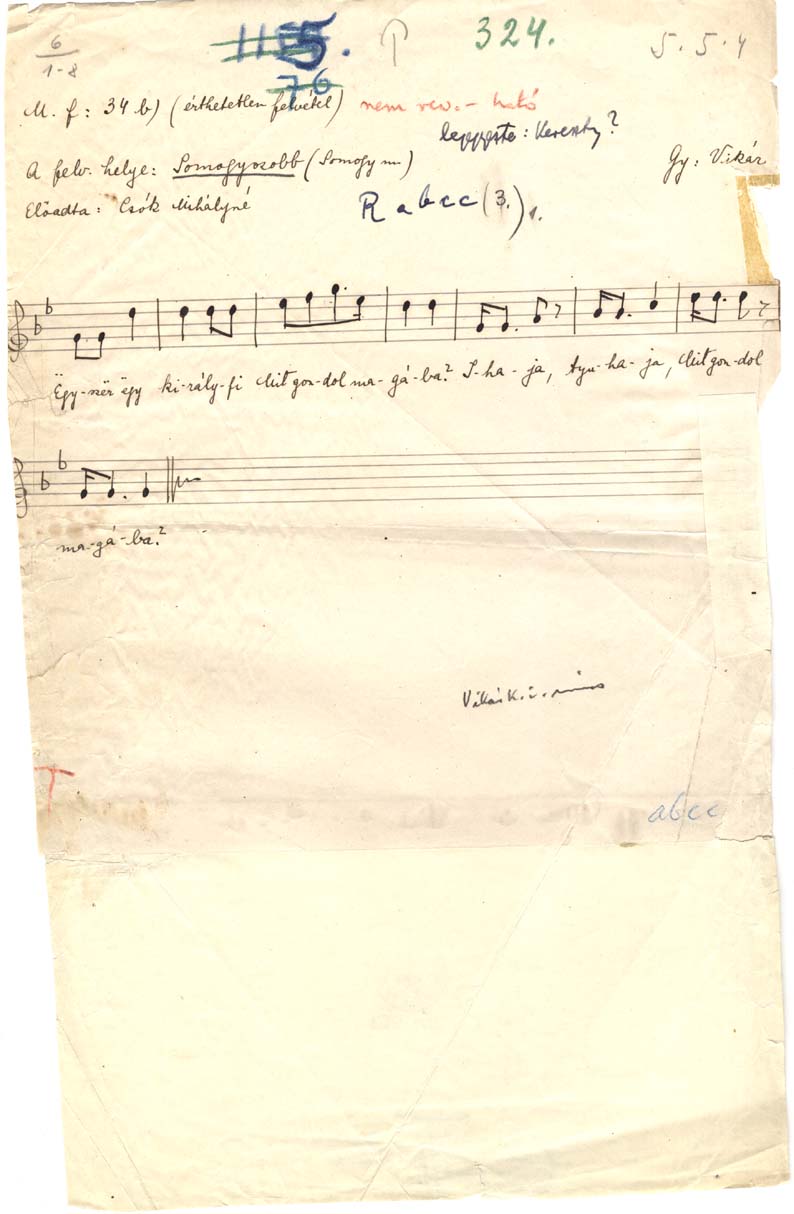 6
1-8
115.
76
324.
5. 5. 4
M. f: 34 b) (érthetetlen felvétel) nem rev.-ható
lejegyezte: Kerenby?
A felv. helye: Somogyszobb (Somogy m)
Gy: Vikár
Előadta: Csók Mihályné
R a b c c (3.) 1.
Ëgy-szër ëgy ki-rály-fi Mit gon-dol ma-gá-ba? I-ha-ja, tyu-ha-ja, Mit gon-dol
ma-gá-ba?
T
abcc